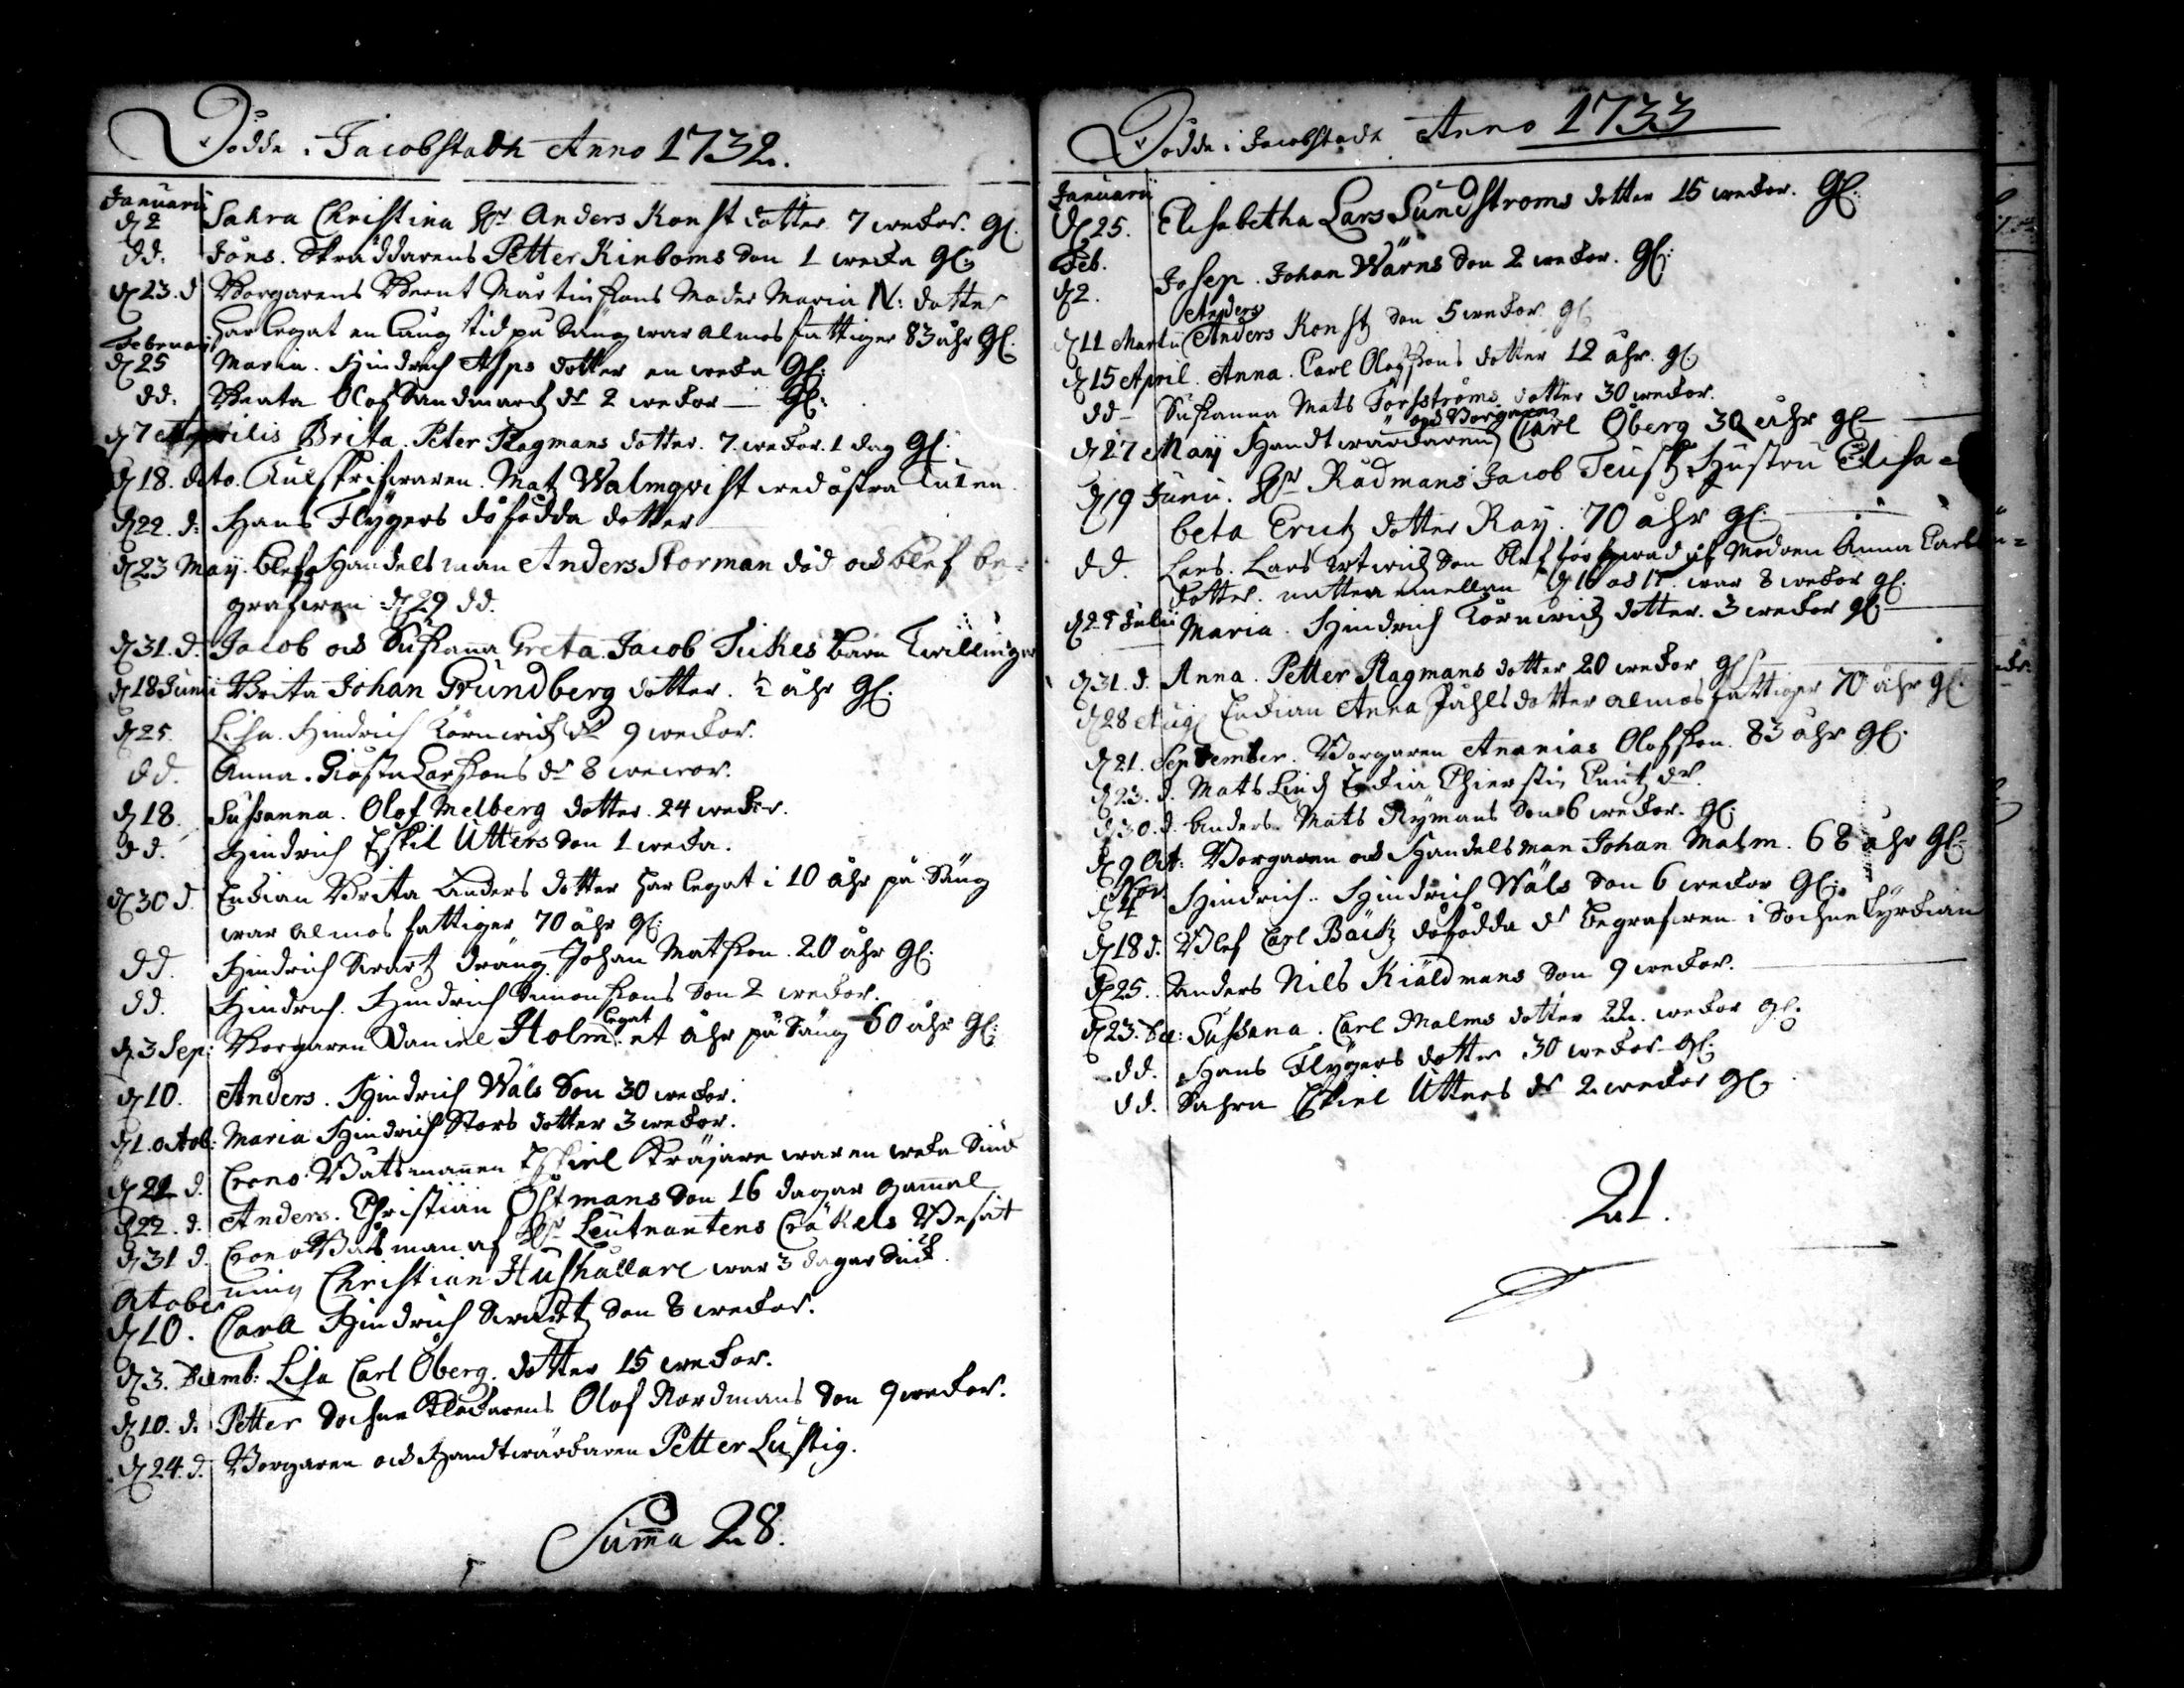 Dödde i Jacobstadh Anno 1732.
Januarii
d 2 Sahra Christina Hr Anders Konst dotter 7 weckor. gl.
dd: Jöns. Skräddarens Petter Kinboms Son 1 wecka gl:
d 23. d Borgarens Berent Mårtinssons Moder Maria N: dotter
har legat en lång tid på Säng war almos fattiger 83 åhr gl.
Februarii
d 25 Maria. Hindrich Asps dotter en wecka gl:
dd: Beata Olof Sandmarck dr 2 weckor gl:
d 7 Aprilis Brita. Peter Flagmans dotter. 7. weckor. 1 dag gl:
d 18. dito. Tulskrifwaren. Matz Walmqwist wed östra Tulen.
d 22. d: Hans Flygers döfödda dotter
d 23 May. blef Handelsman Anders Storman död och blef be=
grafwen d 29 dd.
d 31. d. Jacob och Susanna Greta. Jacob Tickes barn Twillingar
d 18 Junii Brita Johan Grundberg dotter. ½ åhr gl.
d 25. Lisa. Hindrich Törnwich dr 9 weckor.
dd. Anna. Larssons dr 8 weckor.
d 18. Susanna. Olof Melberg dotter. 24 weckor.
dd. Hindrich Eskil Utters Son 1 wecka.
d 30 d. Enckian Brita Anders dotter har legat i 10 åhr på Säng
war almos fattiger 70 åhr gl:
dd. Hindrich Swartz dräng Johan Matsson. 20 åhr gl.
dd. Hindrich. Hindrich Simonssons Son 2 weckor.
legat
d 3 Sep: Borgaren Daniel Holm et åhr på Säng 60 åhr gl:
d 10. Anders. Hindrich Wäls Son 30 weckor.
d 1. octob: Maria Hindrich Stors dotter 3 weckor.
d 22 d. Crono Båtsmannen Eskiel war en wecka Siuk
d 22. d. Anders. Christian Östmans Son 16 dagar gammal
d 31 d. Crono Båtsman af Hr Leutnantens Cräkels Besät
ning Christian Hushållare war 3 dagar Siuk.
October
d 10. Carll Hindrich Swartz Son 8 weckor.
d 3. Decemb: Lisa Carl Öberg. dotter 15 weckor.
d 10. d. Petter Sochne Klockarens Olof Nordmans Son 9 weckor.
d 24. d. Borgaren och Handtwärckaren Petter Lustig.
Summa 28.
Dödde i Jacobstadh Anno 1733
Januarii
d 25. Elisabetha Lars Sundstroms dotter 15 weckor. gl:
Feb.
d 2. Josep. Johan Wärns Son 2 weckor. gl:
Anders
d 11 Martii Anders Konst Son 5 weckor gl
d 15 April. Anna. Carl Olofssons dotter 12 åhr. gl
dd Susanna Mats Forsströms dotter 30 weckor.
och Borgaren
d 27 Maij Handtwärckaren Carl Öberg 30 åhr gl
d 19 Junii. Hr Rådmans Jacob Teustz Hustru Elisa=
beta Erichz dotter Raij. 70 åhr gl.
dd. Lars. Lars Son blef förqwafd af Modren Anna Carls
dotter. natten emellan d 16 och 17. war 8 weckor gl.
d 27 Julii Maria. Hindrich Törnwich dotter. 3 weckor gl
d 31. d. Anna. Petter Flagmans dotter 20 weckor gl
d 28 Aug Enckian Anna Påhls dotter almos fattiger 70 åhr gl.
d 21. September. Borgaren Ananias Olofsson. 83 åhr gl.
d 23. d. Mats Lind Enckia Chierstin Knutz dr.
d 30. d. Anders. Mats Rymans Son 6 weckor. gl.
d 9 Oct: Borgaren och Handelsman Johan Malm. 68 åhr gl
Nov:
d 4 Hindrich. Hindrich Wäls Son 6 weckor gl:
d 18 d. Blef Carl Bäckz döfödda dr begrafwen i Sochne Kyrckian
d 25. Anders Nils Kiäldmans Son 9 weckor.
d 23. Dec: Susanna. Carl Malms dotter 22. weckor gl.
dd. Hans Flygers dotter 30 weckor gl.
dd. Sahra Eskiel Utters dr 2 weckor gl
21.